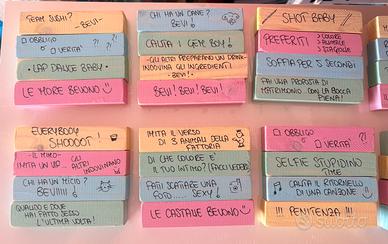 TEAM SUSHI?
- BEVI -
O OBBLIGO
O VERITA'
?!
?!
• LAP DANCE BABY •
LE MORE BEVONO
CHI HA UN CANE?
BEVI!
CANTA I GEM BOY!
-GLI ALTRI PREPARANO UN DRINK-
INDOVINA GLI INGREDIENTI!
- BEVI! -
BEVI! BEVI! BEVI!
SHOT BABY
PREFERITI
> COLORE
> ANIMALE
SOFFIA PER 5 SECONDI
FAI UNA PROPOSTA DI
MATRIMONIO CON LA BOCCA
PIENA!
EVERYBODY
SHOOOOT!
- IL MIMO -
IMITA UN
GLI
ALTRI
INDOVINANO
CHI HA UN MICIO?
BEVI!!!!!
QUANDO E DOVE
HAI FATTO SESSO
L'ULTIMA VOLTA!
IMITA IL VERSO
DI 3 ANIMALI DELLA
FATTORIA
DI CHE COLORE E'
IL TUO INTIMO? (FACCI VEDERE)
FATTI SCATTARE UNA
FOTO..... SEXY!
LE CASTANE BEVONO
O OBBLIGO
O VERITA'
?!
SELFIE STUPIDINO
TIME
CANTA IL RITORNELLO
DI UNA CANZONE
!!! PENITENZA !!!